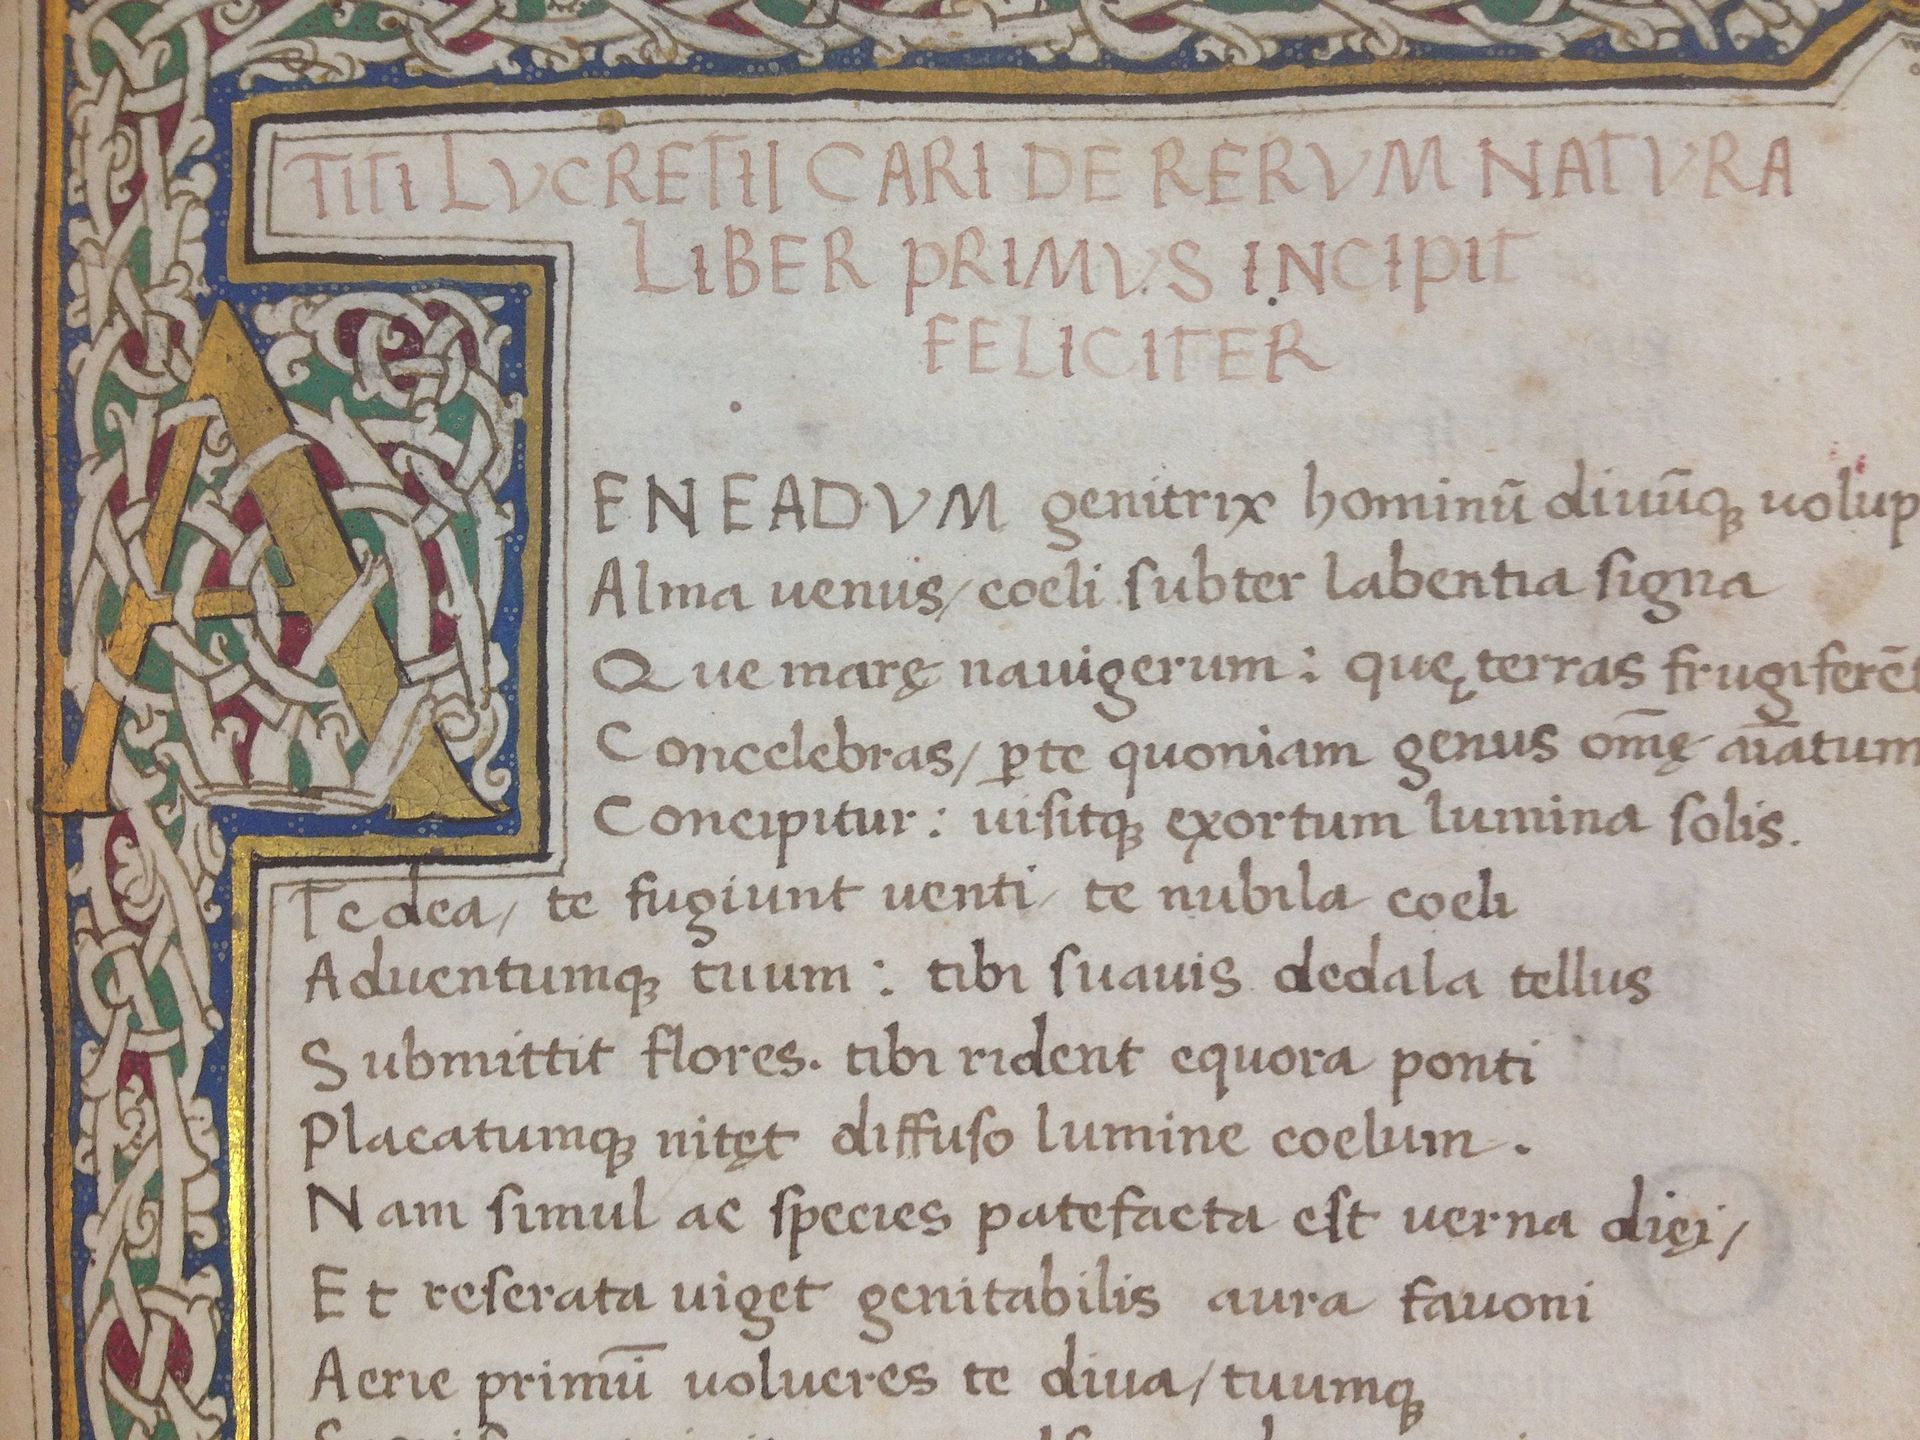 TITI LVCRETII CARI DE RERVM NATVRA
LIBER PRIMVS INCIPIT
FELICITER
AENEADVM genitrix hominū diuūq; uolup
Alma uenus/ coeli subter labentia signa
Que marę nauigerum: quę terras frugiferēt
Concelebras/ ꝑte quoniam genus om̄ę aīatum
Concipitur: uisitq; exortum lumina solis.
Te dea/ te fugiunt uenti/ te nubila coeli
Aduentumq; tuum: tibi suauis dedala tellus
Submittit flores. tibi rident equora ponti
Placatumq; nitęt diffuso lumine coelum.
Nam simul ac species patefacta est uerna dięi/
Et reserata uiget genitabilis aura fauoni
Aerie primū uolucres te diua/ tuumq;